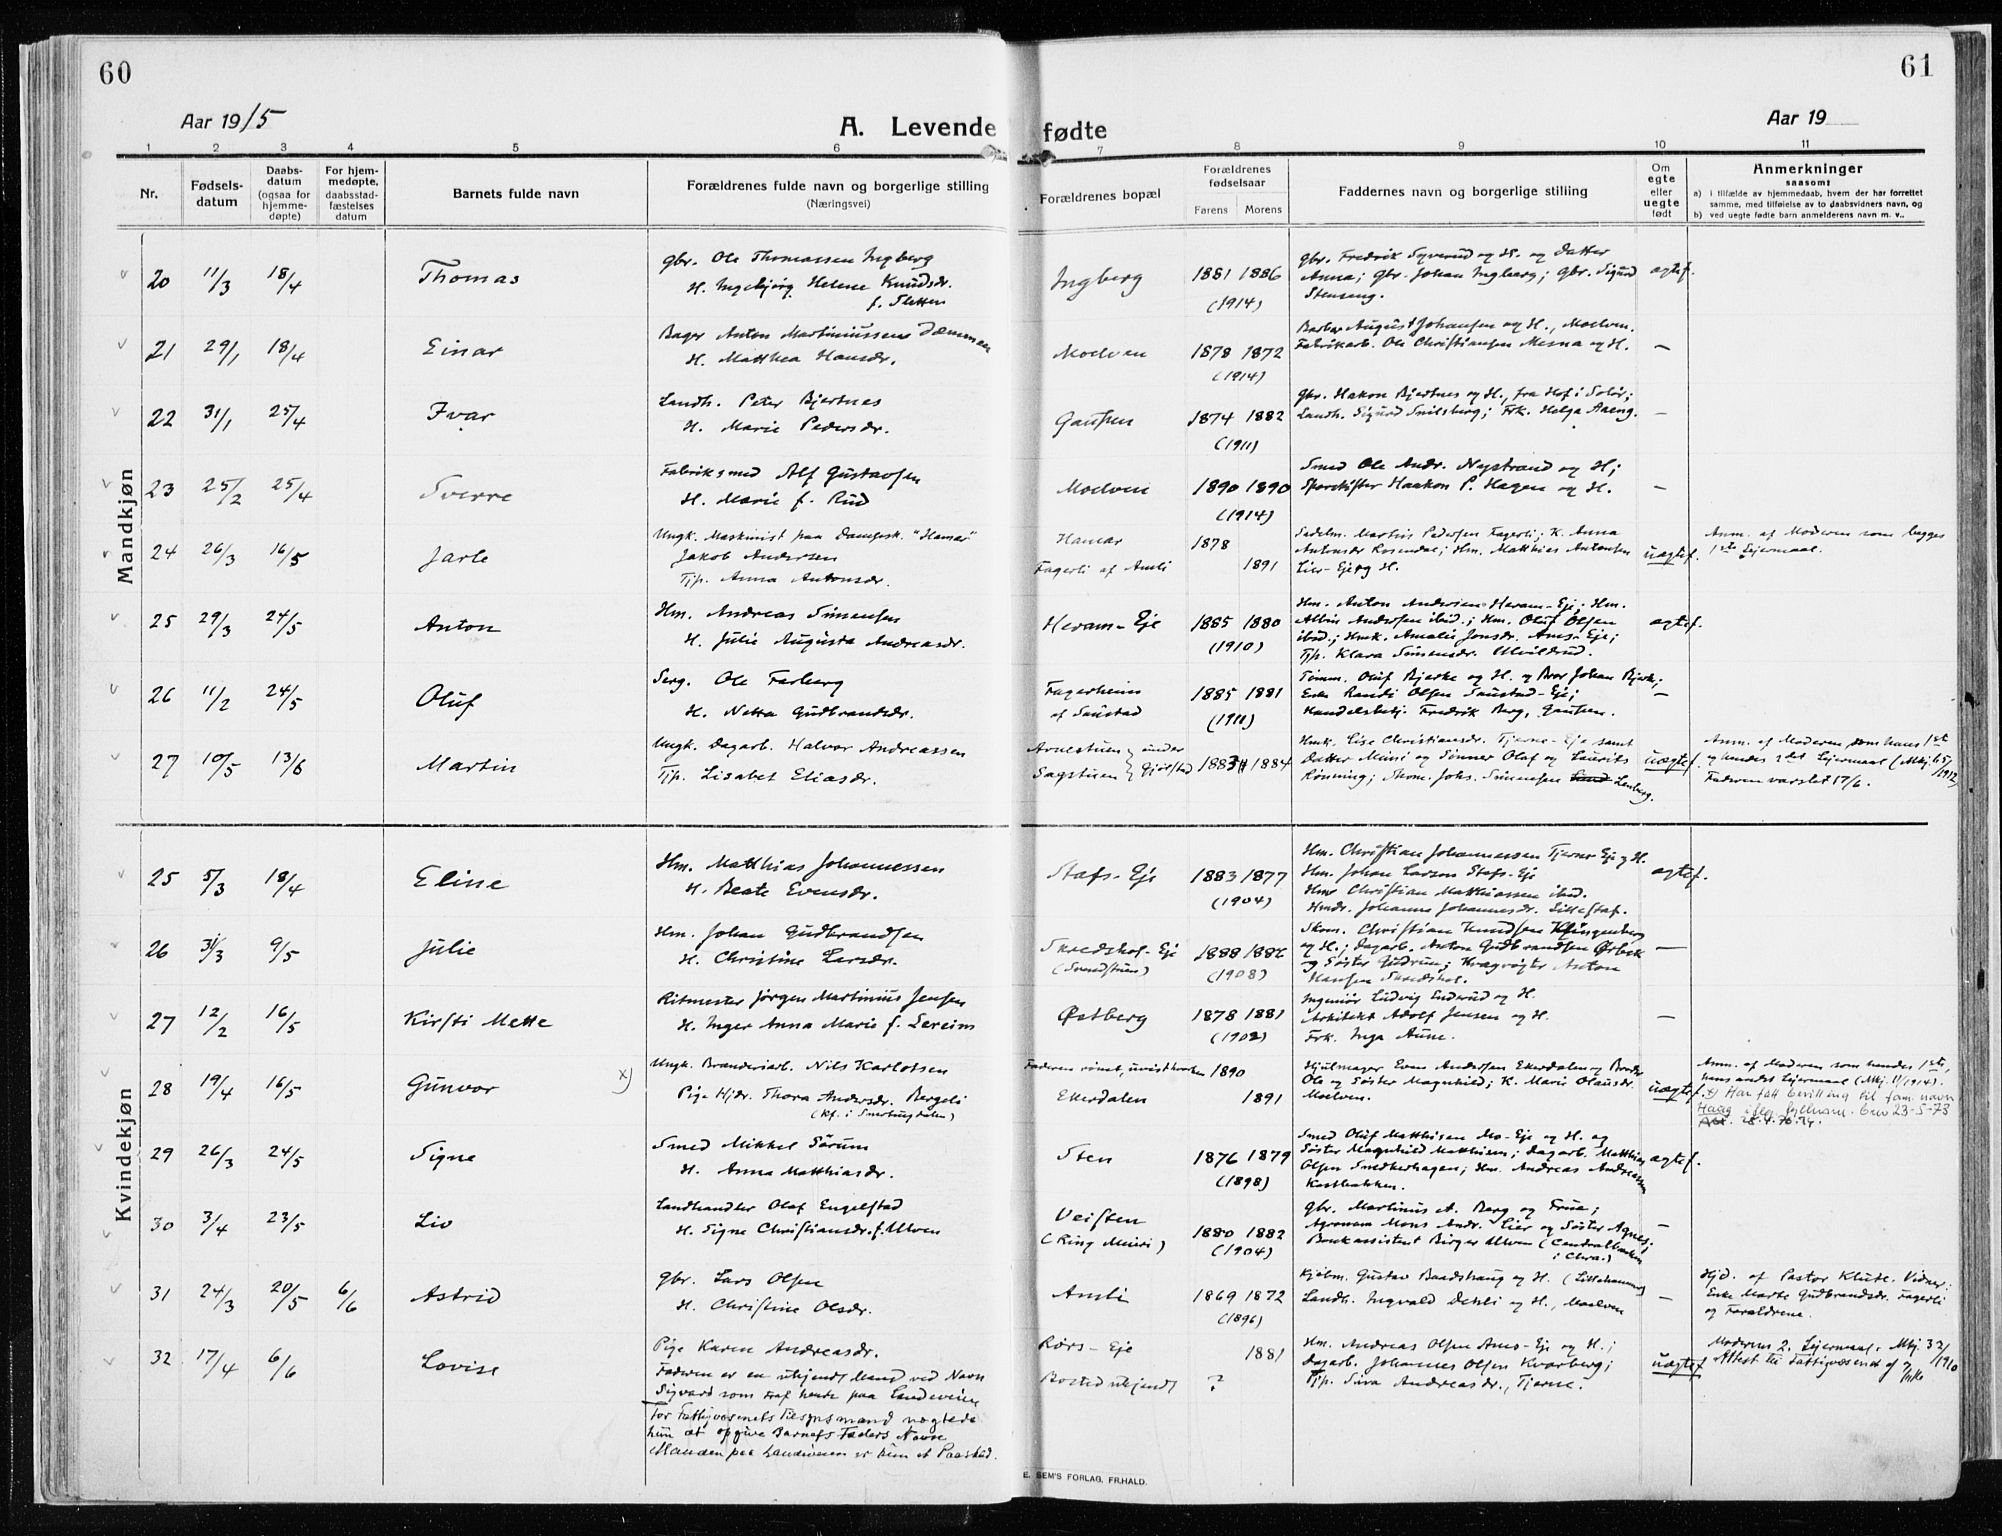 60
61
Aar 1915
A. Levende fødte
Aar 19
1 2 3 4 5 6 7 8 9 10 11
Nr.
Fødsels-
datum
Daabs-
datum
(ogsaa for
hjemme-
døpte)
For hjem-
medøpte,
daabsstad-
fæstelses
datum
Barnets fulde navn
Forældrenes fulde navn og borgerlige stilling
(Næringsvei)
Forældrenes bopæl
Forældrenes
fødselsaar
Farens Morens
Faddernes navn og borgerlige stilling
Om
egte
eller
uegte
født
Anmerkninger
saasom:
a) i tilfælde av hjemmedaab, hvem der har forrettet
samme, med tilføielse av to daabsvidners navn, og
b) ved uegte fødte barn anmelderens navn m. v.
Mandkjøn
20 11/3 18/4 Thomas
gbr. Ole Thomassen Ingberg
H. Ingebjørg Helene Knudsdr.
f. Sletten
Ingberg 1881 1886
(1914)
gbr. Fredrik Syverud og H. og Datter
Anna; gbr. Johan Ingberg; gbr. Sigurd
Stenseng.
egtef.
21 29/1 18/4 Einar
Bager Anton Martiniussen
H. Matthea Hansdr.
Moelven 1878 1872
(1914)
Barber August Johansen og H., Moelven.
Fabrikarb. Ole Christiansen Mesna og H.
—
22 31/1 25/4 Ivar
Landh. Peter Bjertnes
H. Marie Pedersdr.
Gaupen 1874 1882
(1911)
gbr. Hakon Bjertnes og H., fra Hof i Solør;
Landh. Sigurd Snilsberg; Frk. Helga Aaeng.
—
23 25/2 25/4 Sverre
Fabriksmed Alf Gustavsen
H. Marie f. Rud
Moelven 1890 1890
(1914)
Smed Ole Andr. Nystrand og H;
Haakon P. Hagen og H.
—
24 26/3 16/5 Jarle
Ungk. Maskinist paa Dampsk. "Hamar"
Jakob Andersen
Tjp. Anna Antonsdr.
Hamar 1878
Fagerli af Amli 1891
Sadelm. Martin Pedersen Fagerli; K. Anna
Antonsdr Rosendal; Hm. Matthias Antonsen
Lier-Eje og H.
uegtef.
Anm. af Moderen som begges
1ste Leiermaal.
25 29/3 24/5 Anton
Hm. Andreas Simensen
H. Julie Augusta Andreasdr.
Heram-Eje 1885 1880
(1910)
Hm. Anton Andersen Heram-Eje; Hm.
Albin Andersen ibid.; Hm. Oluf Olsen
ibid.; Hmk. Amalie Jonsdr. Eje;
Tjp. Klara Simensdr. Ulvildrud.
egtef.
26 11/2 24/5 Oluf
Serg. Ole Farberg
H. Netta Gudbrandsdr.
Fagerheim
af Saustad
1885 1881
(1911)
Tømm. Oluf Bjerke og H. og Bror Johan Bjerke;
Enke Randi Olsen Saustad-Eje;
Handelsbetj. Fredrik Berg, Gaupen.
—
27 10/5 13/6 Martin
Ungk. Dagarb. Halvor Andreassen
Tjp. Lisabet Eliasdr.
Arnestuen
Sagstuen
under
Gjølstad
1883 1884
Hmk. Lise Christiansdr. Tjerne-Eje samt
Datter Mimi og Sønner Olaf og Laurits
Rønning; Johs. Simensen Lenberg.
uegtef.
Anm. af Moderen som hans 1ste
og hendes 2det Leiermaal (Mkj. 65/1912)
Faderen varslet 17/6.
Kvindekjøn
25 5/3 18/4 Eline
Hm. Matthias Johannessen
H. Beate Evensdr.
Stafs-Eje 1883 1877
(1904)
Hm. Christian Johannessen Tjerne Eje og H.
Hm. Johan Larsen Stafs-Eje
Hm. Christian Matthiassen ibid.
Hmdr. Johanne Johannesdr. Lillestaf.
egtef.
26 31/3 9/5 Julie
Hm. Johan Gudbrandsen
H. Christine Larsdr.
Skredshol-Eje
(Svendstuen)
1888 1886
(1908)
Skom. Christian Knudsen Klüngenberg
og H.; Dagarb. Anton Gudbrandsen Ørbæk
og Søster Gudrun; Kvægrøgter Anton
Hansen Skredshol.
—
27 12/2 16/5 Kirsti Mette
Ritmester Jørgen Martinius Jensen
H. Inger Anna Marie f. Lereim
Østberg 1878 1881
(1902)
Ingeniør Ludvig Enderud og H.
Arkitekt Adolf Jensen og H.
Frk. Inga Aune.
—
28 19/4 16/5 Gunvor x)
Ungk. Branderiarb. Nils Karlotsen
Pige Hjdr. Thora Andersdr. Bergeli
Faderen rømt, uvist hvorhen 1890
Ekerdalen 1891
Hjulmager Even Andersen Ekerdalen og Broder
Ole og Søster Magnhild; K. Marie Olausdr.
Moelven.
uegtef.
Anm. af Moderen som hendes 1ste,
hans andet Leiermaal (Mkj. 1/1914).
x) Har fått bevilling til fam. navn
Haag ifløg. fylkesm. brev 23-5-73
29 26/3 24/5 Signe
Smed Mikkel Sørum
H. Anna Matthiasdr.
Sten 1876 1879
(1898)
Smed Oluf Matthisen Mo-Eje og H. og
Søster Magnhild Matthisen; Dagarb. Matthias
Olsen Smedkerhagen; Hm. Andreas Andreassen
Kostbakken.
egtef.
30 3/4 23/5 Liv
Landhandler Olaf Engelstad
H. Signe Christiansdr. f. Ulven
Veisten
(Ring Meieri)
1880 1882
(1904)
gbr. Martinus A. Berg og Frue;
Agronom Mons Andr. Lier og Søster Agnes;
Bankassistent Birger Ulven (Centralbanken
i Chra.)
—
31 24/3 20/5 6/6 Astrid
gbr. Lars Olsen
H. Christine Olsdr.
Amli 1869 1872
(1896)
Kjøbm. Gustav Baadshaug og H. (Lillehammer)
Landh. Ingvald Dehli og H., Moelven
—
Hjd. af Pastor Klute. Vidner:
Enke Marte Gudbrandsdr. Fagerli
og Forældrene.
32 17/4 6/6 Lovise
Pige Karen Andreasdr.
Faderen er en ukjendt Mand ved Navn
Sigvard som traf hende paa Landeveien
For Fattigvæsenets Tilsynsmand nægtede
hun at opgive Barnets Faders Navn
Manden paa Landeveien er kun et Paaskud.
Rørs-Eje 1881
Bosted ukjendt ?
Hm. Andreas Olsen Eje og H.;
Dagarb. Johannes Olsen Kvarberg;
Tjp. Andreasdr., Tjerne.
uegtef.
Moderens 2. Leiermaal. Mkj. 32/1910
Attest til Fattigvæsenet
E. SEM'S FORLAG, FR.HALD.